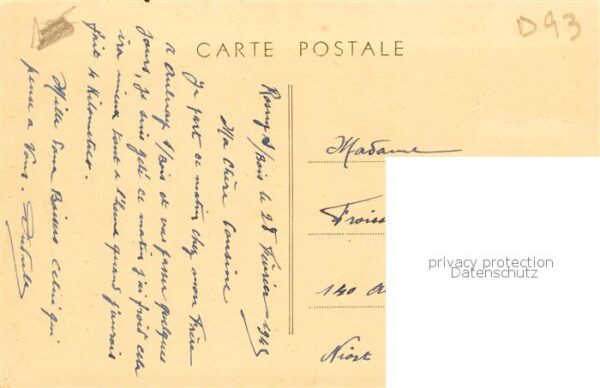 D93
CARTE POSTALE
Rosny s/Bois le 28 Février 1945
Ma Chère Cousine
Je part ce matin chez mon Frère
a Aulnay s/Bois et vas passer quelques
Jours, je suis gelé ce matin j'ai froid cela
ira mieux tant a l'heure quand j'aurais
fait 4 Kilomètres.
Mille Bons Baisers Celui qui
pense a Vous.
Madame
Froiss
140 A
Niort
privacy protection
Datenschutz